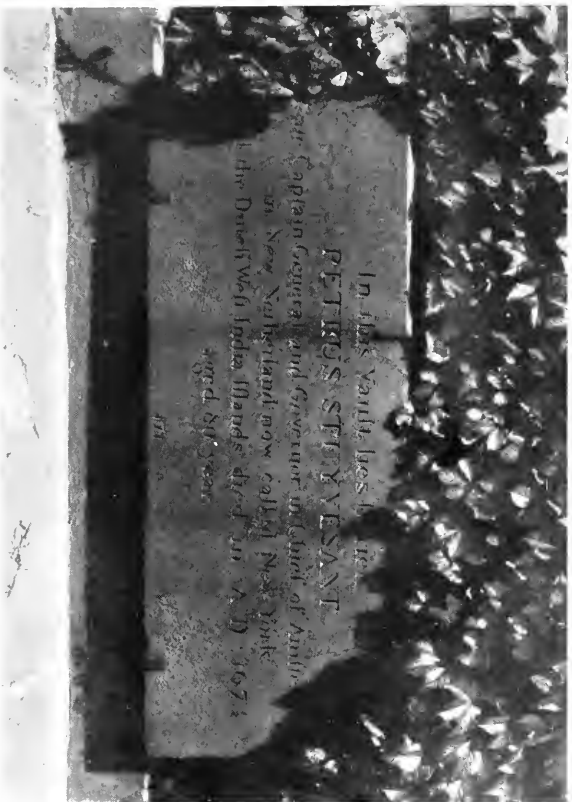 In this Vault lies
PETRUS STUYVESANT
Captain General and Governor in Chief of
in New Netherland now called New York
the Dutch West India Islands died in A D 167
aged 80 years